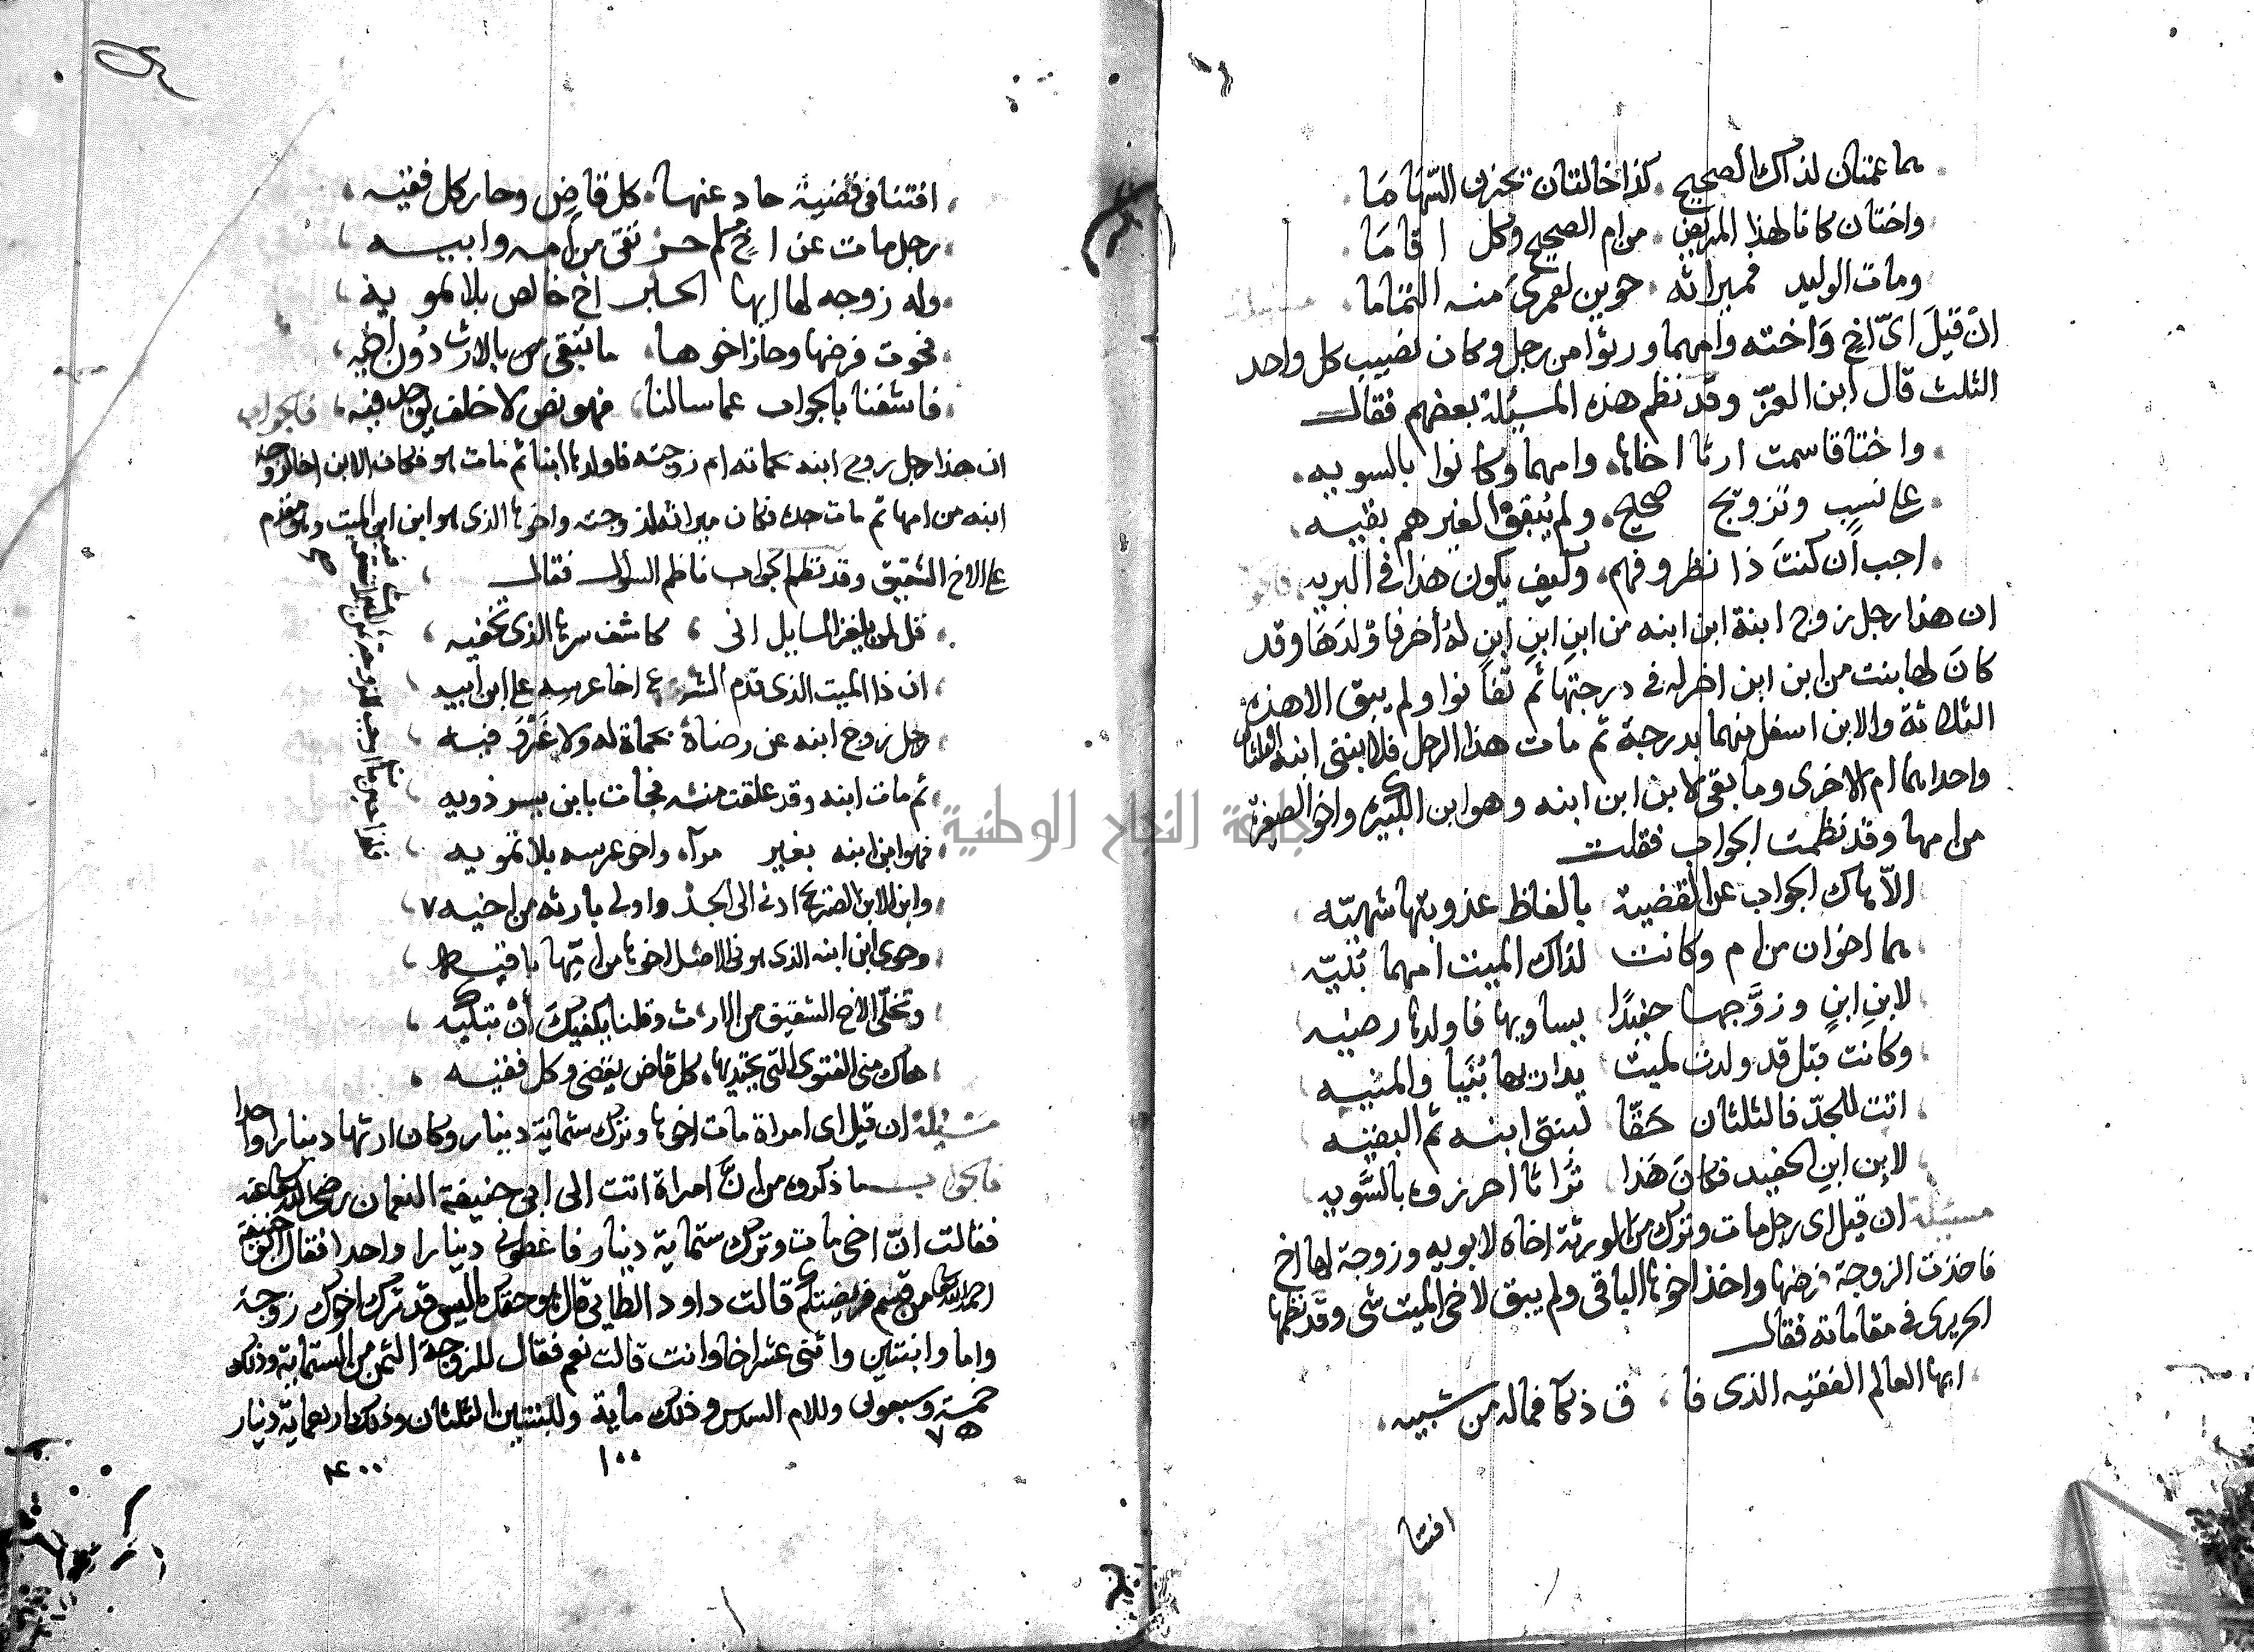 هما عمتان لذاك الصحيح كذا خالتان تحوزن السهاما
واختان كانا لهذا المريض من ام الصحيح وكل اقاما
ومات الوليد فميراثه حوين لعمرى منه التماما
ان قيل اىّ اخ واخته وامهما ورثوا من رجل وكان نصيب كل واحد
الثلث قال ابن العزّ وقد نظم هذه المسئلة بعضهم فقال
واختا قاسمت ارثا اخاها وامهما وكانوا بالسويه
على نسب وتزويج صحيح ولم يبق لغيرهم بقيه
اجب ان كنت ذا نظر وفهم وكيف يكون هذا فى البريه
ان هذا رجل زوج ابنة ابن ابنه من ابن ابن ابن له أخر فاولدها وقد
كان لها بنت من ابن ابن اخر له فى درجتها ثم تفانوا ولم يبق الا هذه
الثلاثة والابن اسفل منهما بدرجة ثم مات هذا الرجل فلابنتى ابنه الثلثان
واحداهما ام الاخرى وما بقى لابن ابن ابنه وهو ابن الكبيرة واخو الصغيرة
من امها وقد نظمت الجواب فقلت
الاّ هاك الجواب عن القضية بالفاظ عذوبتها شهيه
هما اخوان من ام وكانت لذاك الميت امهما بنيّه
لابن ابن وزوَّجها حفيدًا يساويها فاولدها رضيه
وكانت قبل قد ولدت لميت بها بنيا والمنيه
اتت للجدّ فالثلثان حقّا لبنتى ابنه ثم البقيه
لابن ابن الحفيد فكان هذا تراثا احرزوه بالسَّويه
مسئلة ان قيل اى رجل مات وترك من الورثة اخاه لابويه وزوجة لها اخ
فاخذت الزوجة فرضها واخذ اخوها الباقى ولم يبق لاخى الميت شى وقد نظمها
الحريرى فى مقاماته فقال
ايها العالم الفقيه الذى فا ق ذكآ فماله من شبيه
افتنا
افتنا فى قضية حاد عنها كل قاضٍ وحار كل فقيه
رجل مات عن اخ مسلم حر تقى من امه وابيه
وله زوجه لها ايها الحبر اخ خالص بلا تمويه
فحوت فرضها وحاز اخوها ما تبقى بالارث دون اخيه
فاشفنا بالجواب عما سالنا فهو نص لا خلف يوجد فيه فالجواب
ان هذا رجل زوج ابنه بحماته ام زوجته فاولدها ابنا ثم مات هو فكان الابن اخا لزوجة
ابنه من امها ثم مات جده فكان ميراثه لزوجته واخوها الذى هو ابن ابن الميت وهو مقدم
على الاخ الشقيق وقد نظم الجواب ناظم السؤال فقال
قل لمن يلغز المسايل انى كاشف سرها الذى تخفيه
ان ذا الميت الذى قدم الشرع اخا عرسه على ابن ابيه
رجل زوج ابنه عن رضاهُ بحماة له ولا غَرْوَ فيه
ثم مات ابنه وقد علقت منه فجات بابن يسر ذويه
فهو ابن ابنه بغير مرآء واخو عرسه بلا تمويه
وابن الابن الصريح ادنى الى الجد واولى بارثه من اخيه
وحوى ابن ابنه الذى هو فى الاصل اخوها من امّها باقيه
وتخلّى الاخ الشقيق من الارث وقلنا يكفيك أن تبكيه
هاك منى الفتوى التى يحتذيها كل قاض يقضى وكل فقيه
مسئلة ان قيل اى امراة مات اخوها وترك ستماية دينار وكان ارثها دينارا واحدا
فالجواب ما ذكروه من انَّ امراة اتت الى ابى حنيفة النعمان رضى الله تعالى عنه
فقالت انّ اخى مات وترك ستماية دينار فاعطونى دينارا واحدا فقال ابو حنيفة
رحمه الله تعالى من قسم فريضتكم قالت داود الطايى قال هو حقك اليس قد ترك اخوك زوجة
واما وابنتين واثنى عشر اخا وانت قالت نعم فقال للزوجة الثمن من الستماية وذلك
خمسة وسبعون وللام السدس وذلك ماية وللبنتين الثلثان وذلك اربعماية دينار
٧٥ ١٠٠ ٤٠٠
جامعة النجاح الوطنية